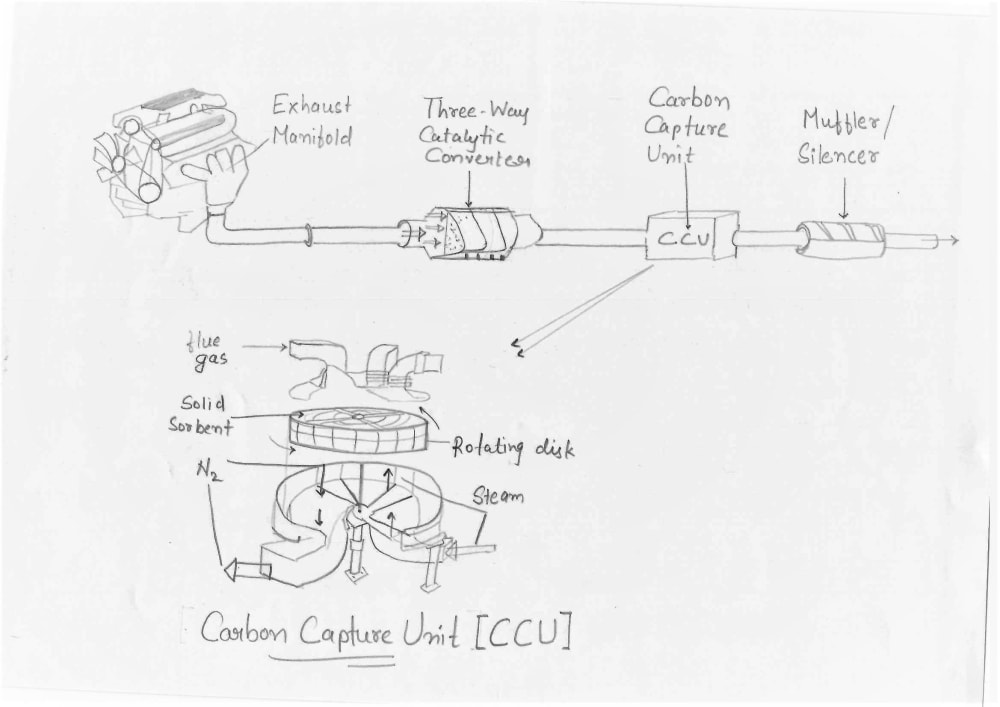 Exhaust
Manifold
Three-Way
Catalytic
Converter
Carbon
Capture
Unit
Muffler/
Silencer
CCU
flue
gas
Solid
Sorbent
Rotating disk
N2
Steam
Carbon Capture Unit [CCU]